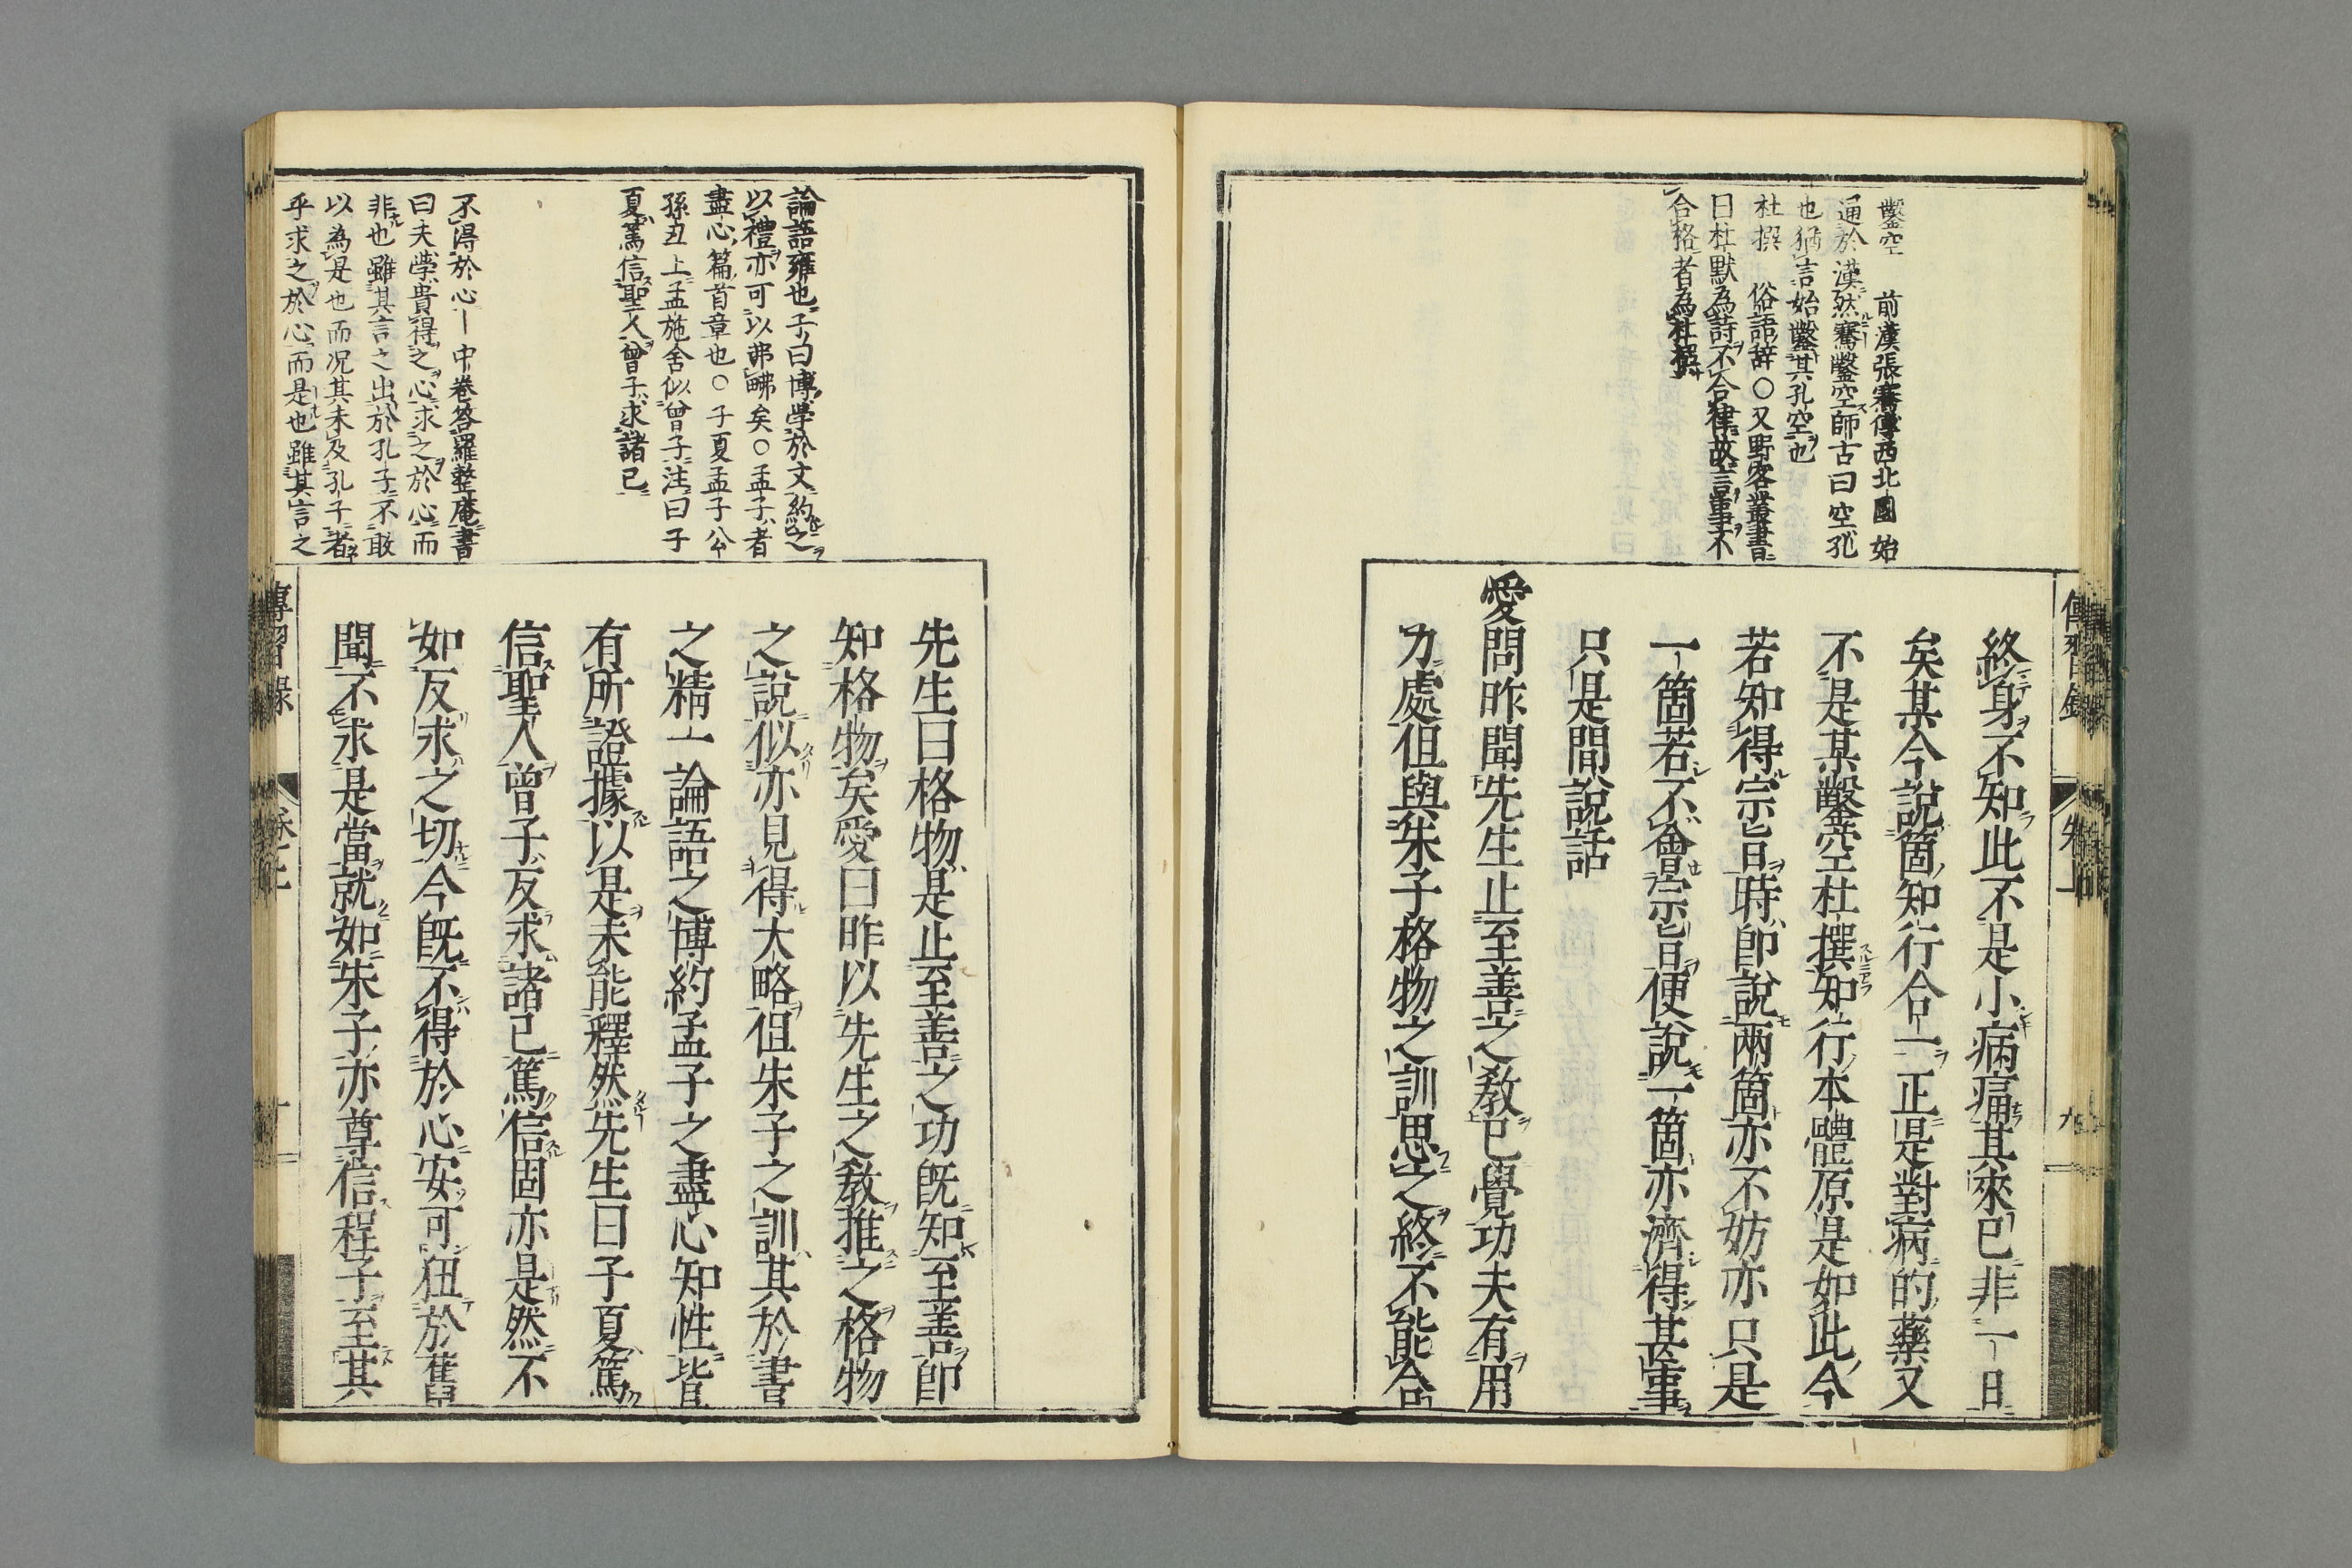 鑿空　前漢張騫傳西北國始
通於漢然騫鑿空師古曰空孔
也猶言始鑿其孔空也
杜撰　俗語辞○又野客叢書
曰杜默為詩不合律故言事不
合格者為杜撰
傳習錄
卷上
九
終身不知此不是小病痛其來已非一日
矣某今說箇知行合一正是對病的藥又
不是某鑿空杜撰知行本體原是如此今
若知得宗旨時即說兩箇亦不妨亦只是
一箇若不會宗旨便說一箇亦濟得甚事
只是閒說話
愛問昨聞先生止至善之教已覺功夫有用
力處但與朱子格物之訓思之終不能合
論語雍也子曰博學於文約之
以禮亦可以弗畔矣○孟子者
盡心篇首章也○子夏孟子公
孫丑上孟施舍似曾子注曰子
夏篤信聖人曾子求諸己
不得於心｜中卷答羅整庵書
曰夫學貴得之心求之於心而
非也雖其言之出於孔子不敢
以為是也而况其未及孔子者
乎求之於心而是也雖其言之
先生曰格物是止至善之功既知至善即
知格物矣愛曰昨以先生之教推之格物
之說似亦見得大略但朱子之訓其於書
之精一論語之博約孟子之盡心知性皆
有所證據以是未能釋然先生曰子夏篤
信聖人曾子反求諸己篤信固亦是然不
如反求之切今既不得於心安可狃於舊
聞不求是當就如朱子亦尊信程子至其
傳習錄
卷上
十